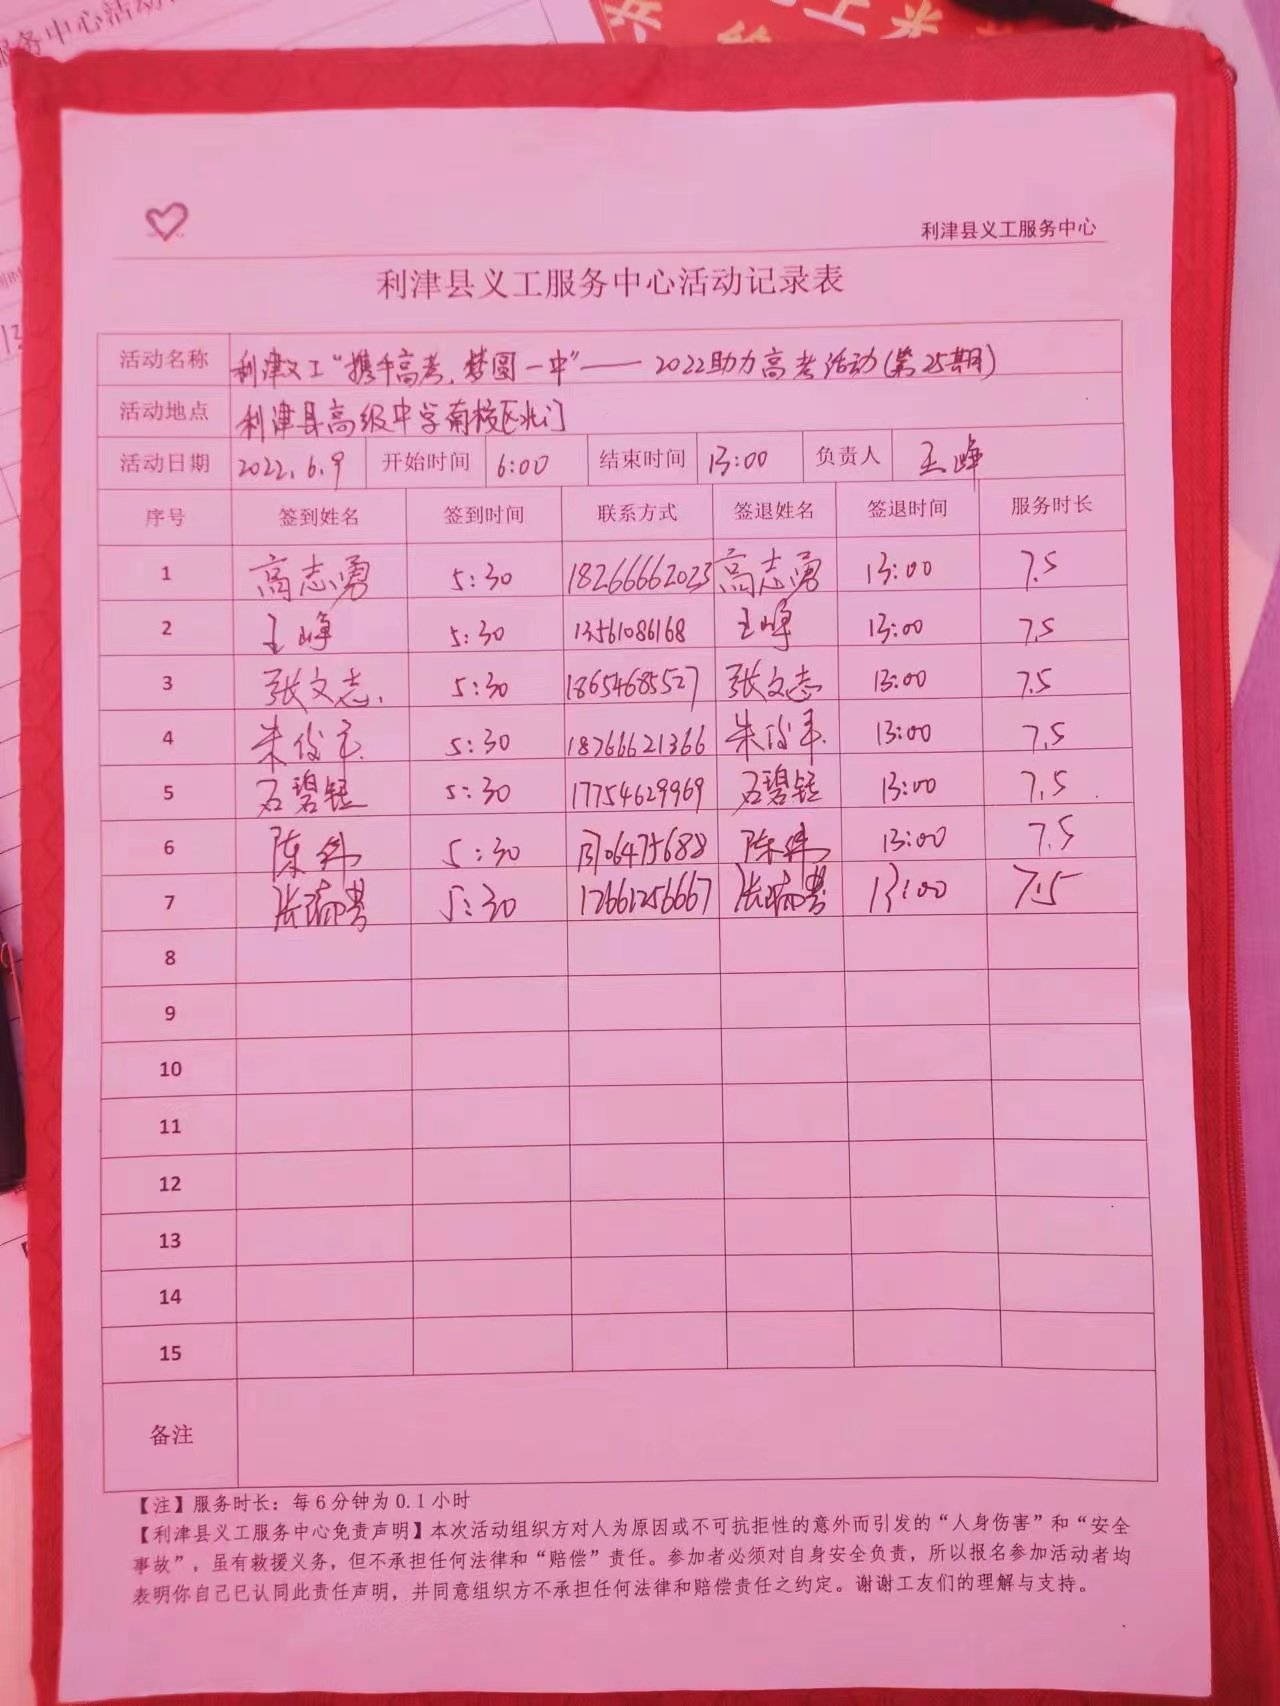 服务中心活动
利津县义工服务中心
利津县义工服务中心活动记录表
活动名称 利津义工“携手高考、梦圆一中”——2022助力高考活动(第25期)
活动地点 利津县高级中学南校区北门
活动日期 2022.6.9 开始时间 6:00 结束时间 13:00 负责人 王峰
序号 签到姓名 签到时间 联系方式 签退姓名 签退时间 服务时长
1 高志勇 5:30 18266662023 高志勇 13:00 7.5
2 王峰 5:30 13561086168 王峰 13:00 7.5
3 张文志 5:30 18654685527 张文志 13:00 7.5
4 朱俊 5:30 18266621366 朱俊 13:00 7.5
5 石碧 5:30 17754629969 石碧 13:00 7.5
6 陈伟 5:30 陈伟 13:00 7.5
7 张瑞 5:30 张瑞 13:00 7.5
8
9
10
11
12
13
14
15
备注
【注】服务时长：每6分钟为0.1小时
【利津县义工服务中心免责声明】本次活动组织方对人为原因或不可抗拒性的意外而引发的“人身伤害”和“安全
事故”，虽有救援义务，但不承担任何法律和“赔偿”责任。参加者必须对自身安全负责，所以报名参加活动者均
表明你自己已认同此责任声明，并同意组织方不承担任何法律和赔偿责任之约定。谢谢工友们的理解与支持。